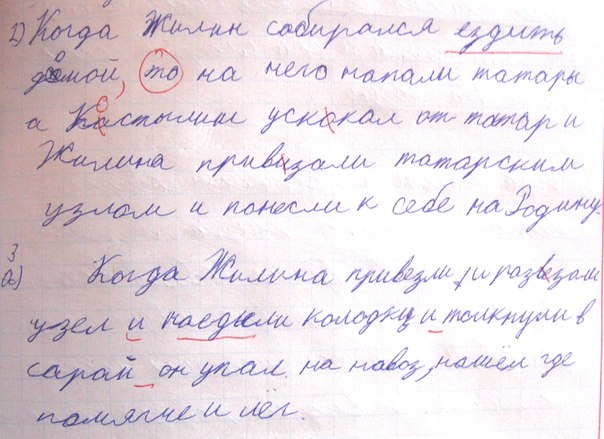 2) Когда Жилин собирался ездить
домой, то на него напали татары
а Костылин ускокал от татар и
Жилина привизали татарским
узлом и понесли к себе на Родину.
3
а) Когда Жилина привезли, и развезали
узел и наедили колодки и толкнули в
сарай он упал на навоз, нашёл где
помягче и лёг.